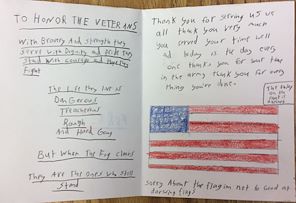 TO HONOR THE VETERANS
With Bravery And Strength they
Serve with Dignity and Pride They
Stand with courage and They
Fight
The Life they live is
Dangerous
Treacherous
Rough
And Hard Going
But When The Fog clears
They Are The Ones Who Still
Stand
Thank you for serving us we
all thank you very much
you served your time well
and today is the day every
one thanks you for your time
in the army thank you for every
thing you've done.
Sorry About the flag im not to Good at
drawing flags